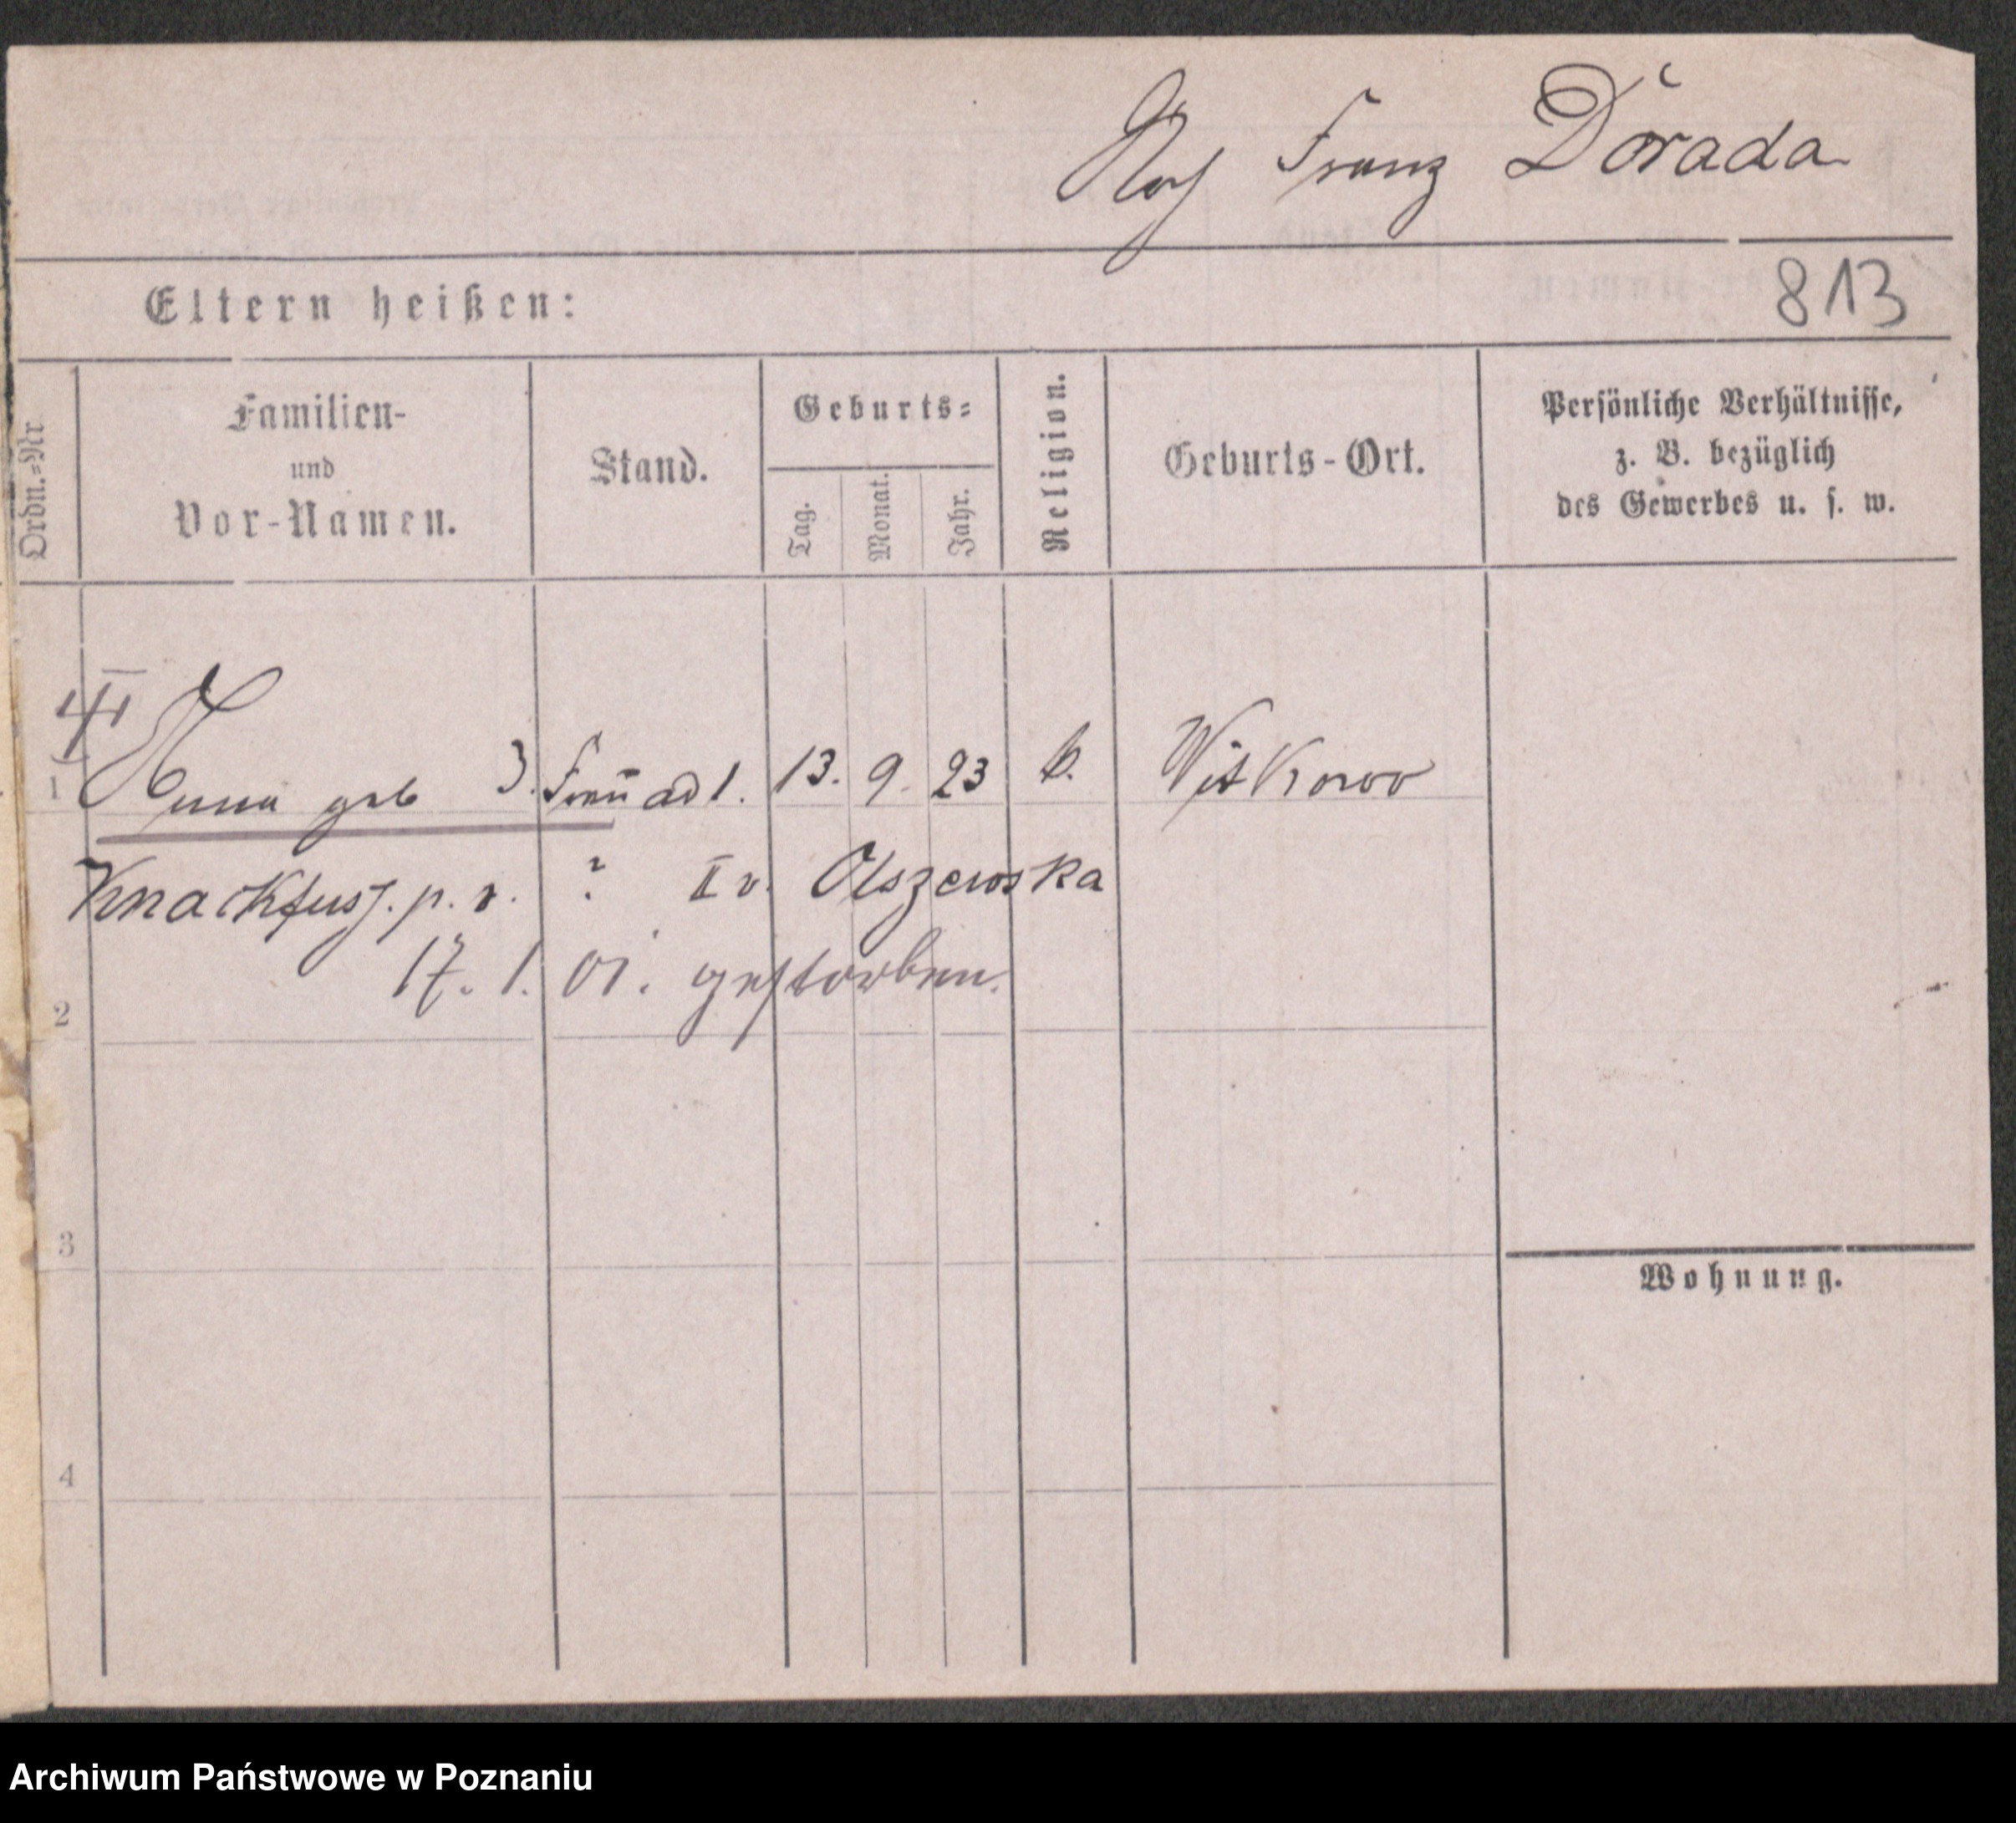 Franz Dorada
813
Eltern heißen:
Ordn.=Nr.
Familien-
und
Vor-Namen.
Stand.
Geburts=
Tag.
Monat.
Jahr.
Religion.
Geburts-Ort.
Persönliche Verhältnisse,
z. B. bezüglich
des Gewerbes u. s. w.
1 Anna geb 3. Frau ad 1. 13. 9. 23 Witkowo
Knackfuss. p. v. ? II v. Olszewska
17. 1. 01. gestorben.
2
3
4
Wohnung.
Archiwum Państwowe w Poznaniu